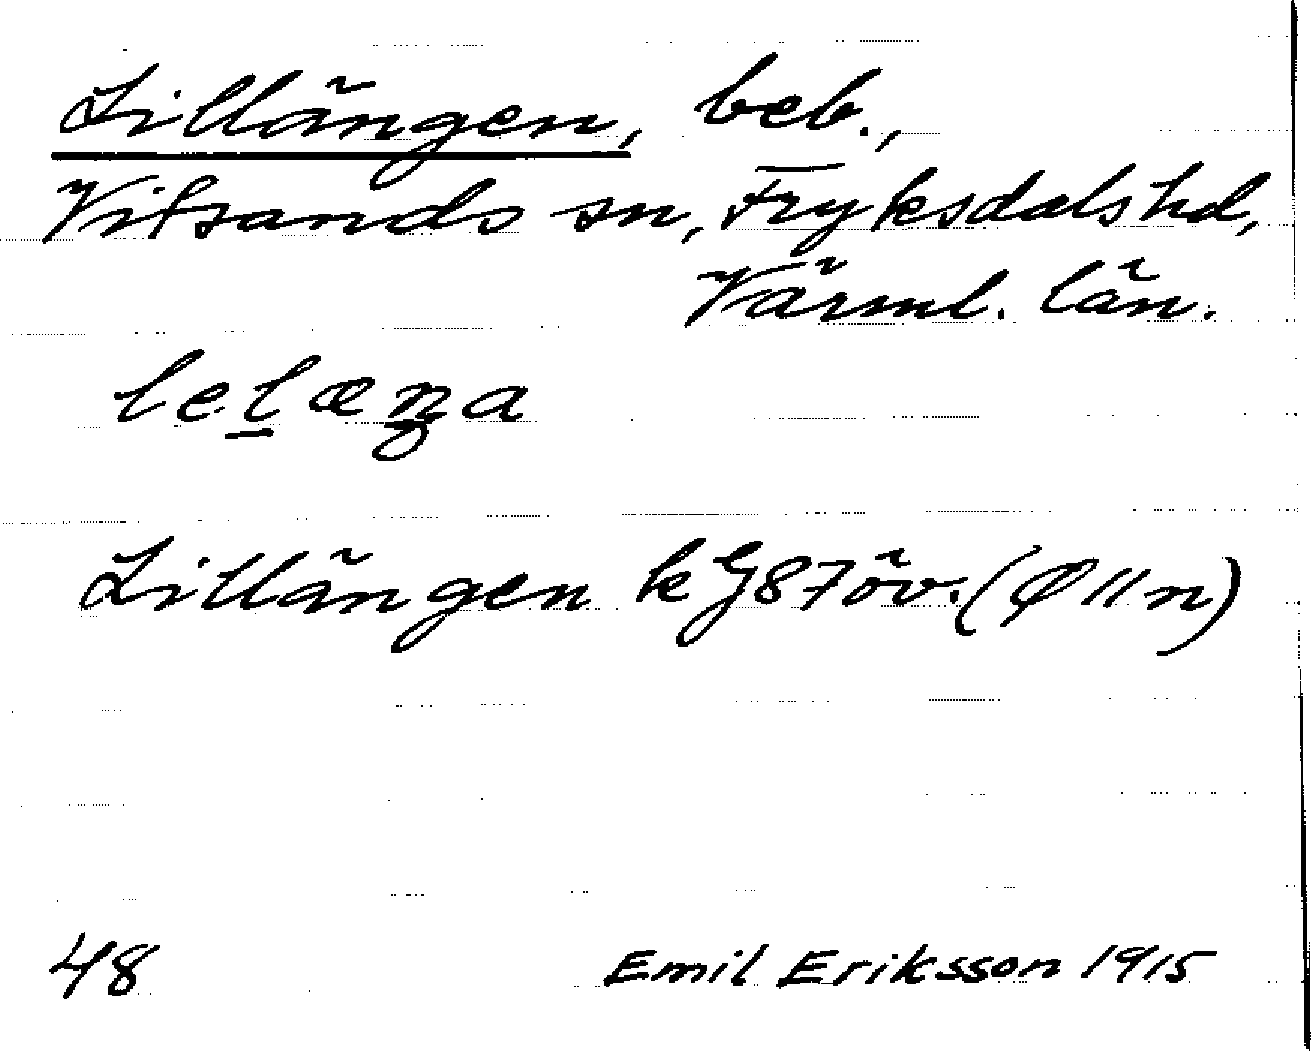 Lillängen, beb.,
Vitsands sn, Fryksdals hd,
Värml. län.
lelæŋa
Lillängen kG87öv. (Ø11n)
48 Emil Eriksson 1915